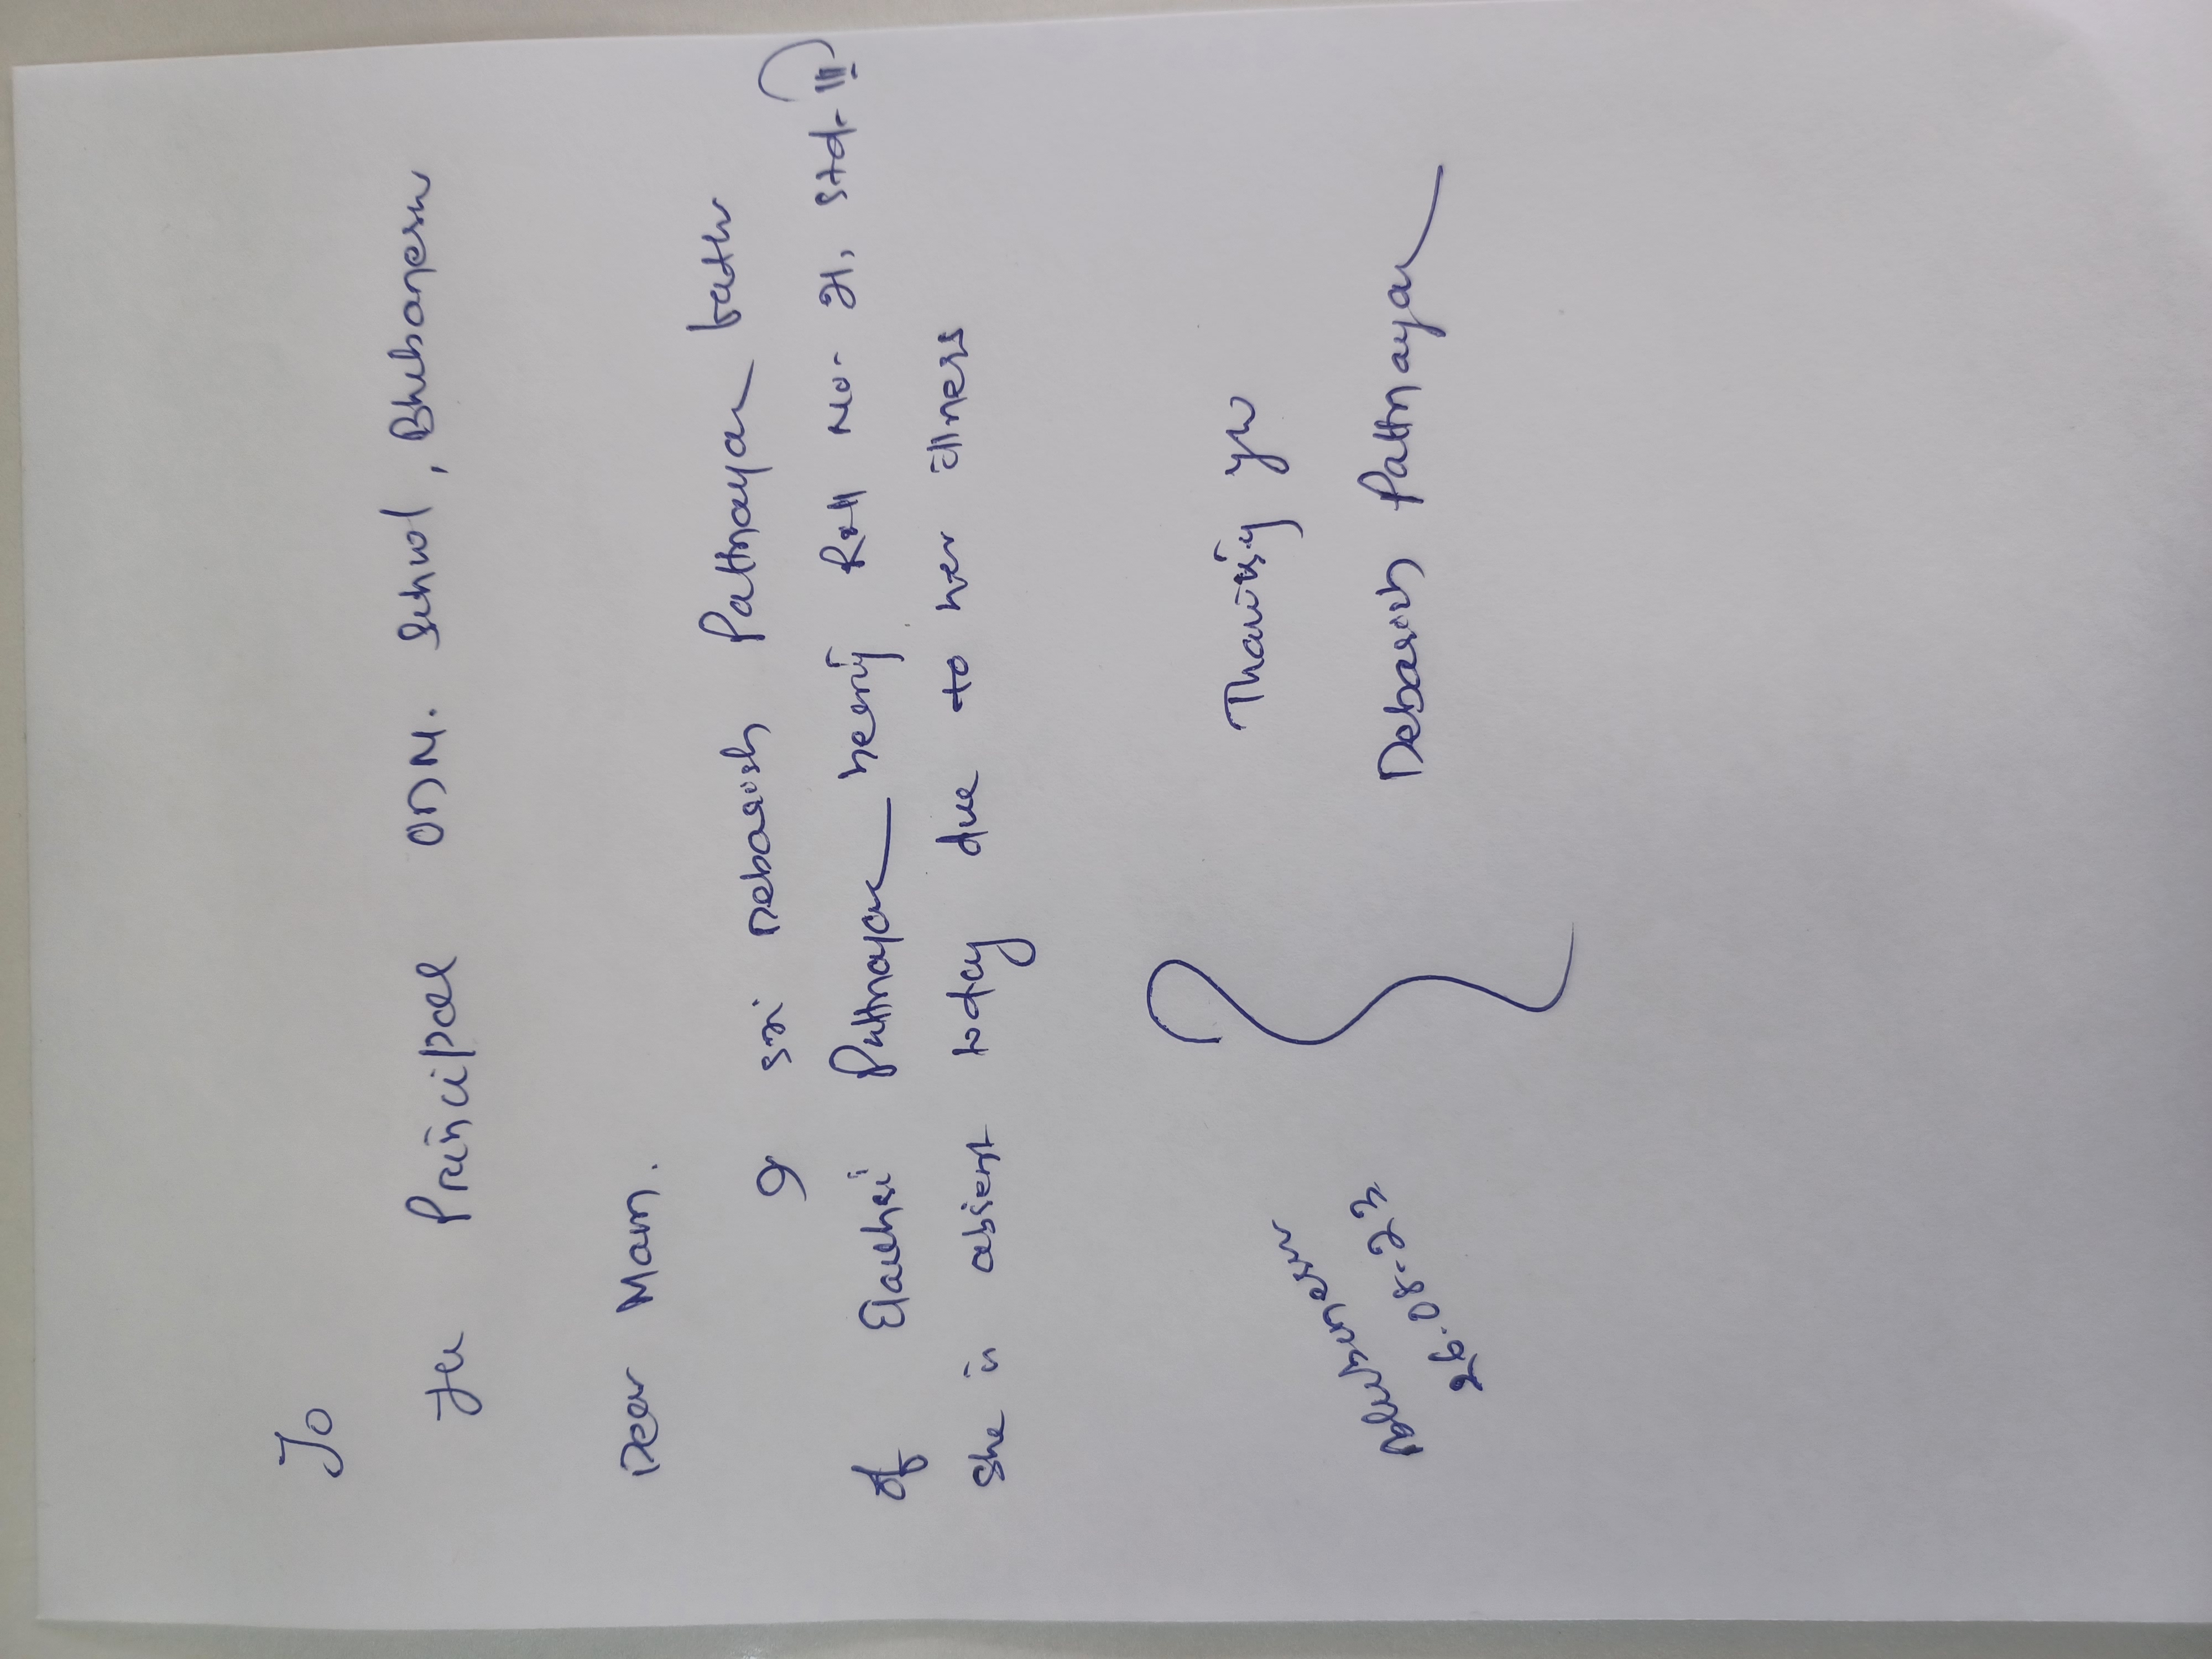 To
The Principal ODM. School, Bhubaneswar
Dear Mam.
I Sri Debasish Pattnayak father
of Elakshi Pattnayak Roll No- 21, Std- III
She is absent today due to her illness
Thanking you
Debasish Pattnayak
Bhubaneswar
26.08-23